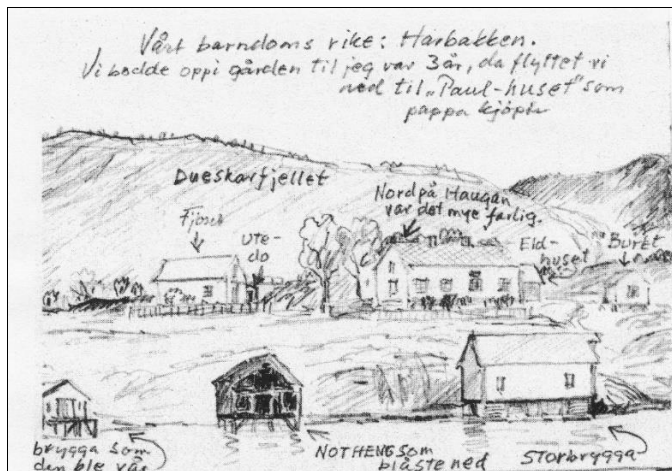 Vårt barndoms rike: Harbakken.
Vi bodde oppi gården til jeg var 3 år, da flyttet vi
ned til "Paul-huset" som
pappa kjøpte
Dueskarfjellet
Nordpå Haugan
var det mye farlig.
Fjøset
Ute-
do
Eld-
huset
Buret
brygga som
den ble vår
NOTHENG som
blåste ned
STORBRYGGA